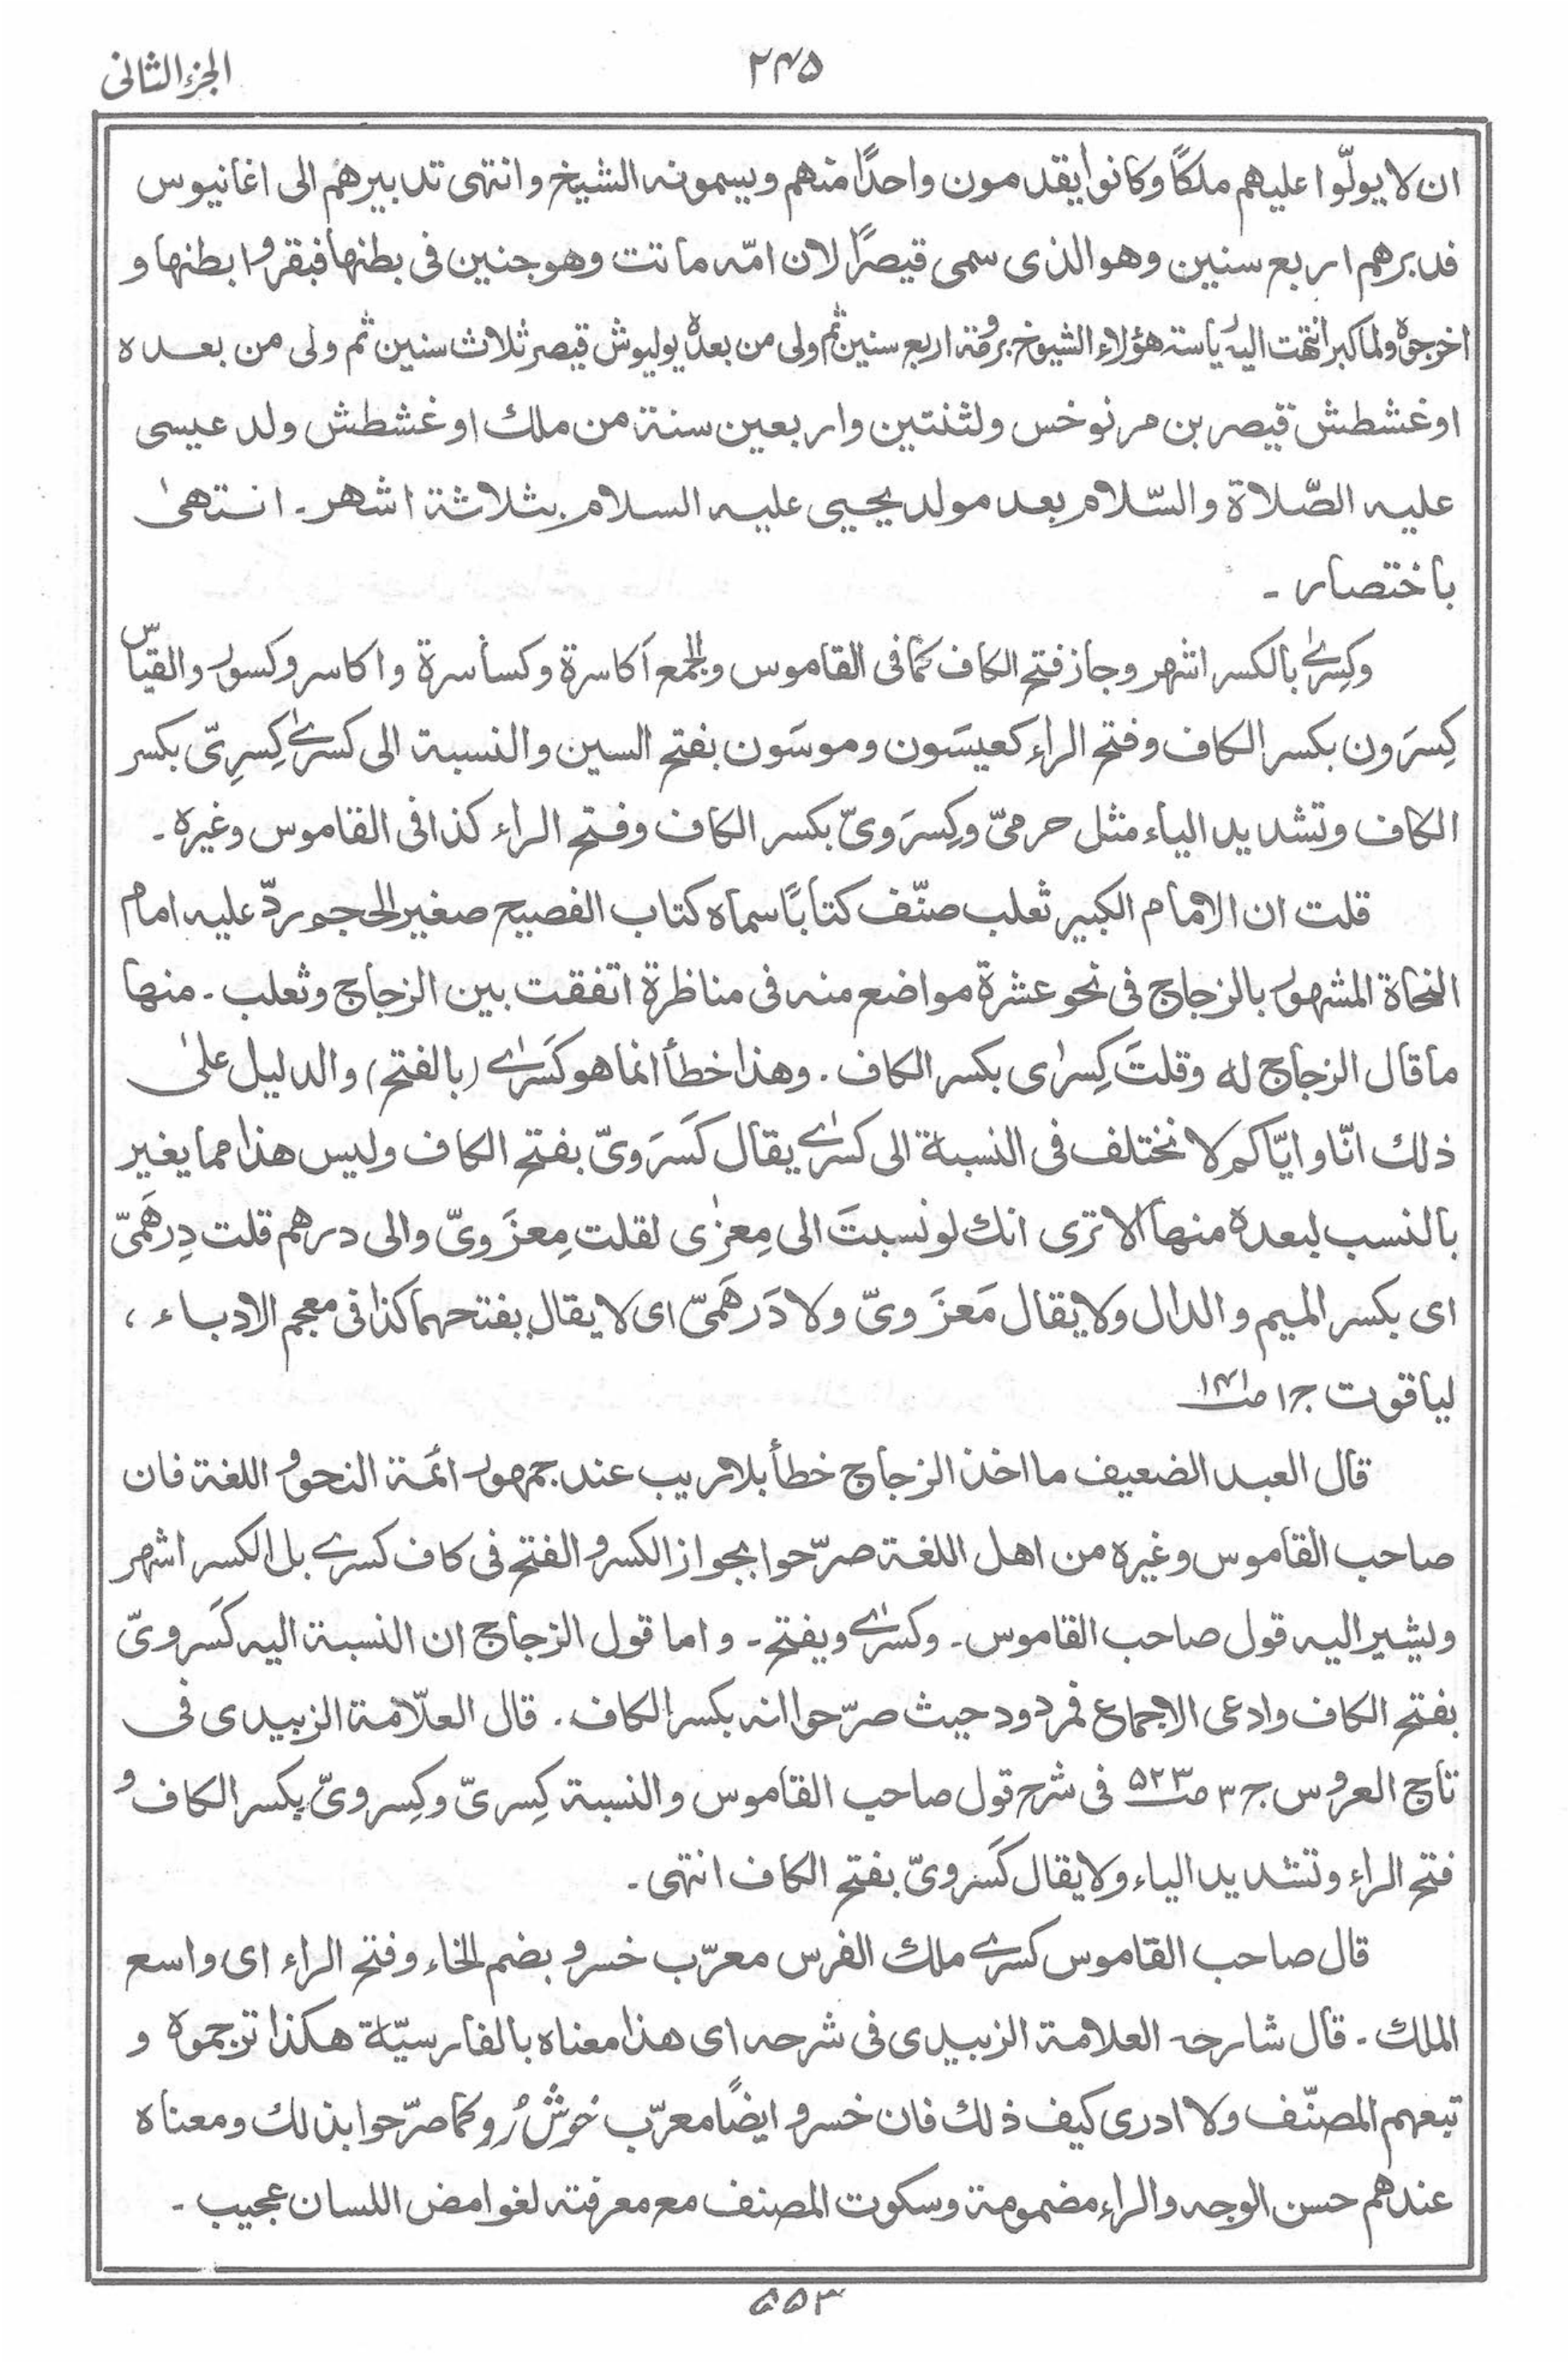 الجزء الثانی
۲۴۵
ان لا یولّوا علیهم ملکًا وکانوا یقدمون واحدًا منهم ویسمونه الشیخ وانتهی تدبیرهم الی اغانیوس
فدبرهم اربع سنین وهو الذی سمی قیصرًا لان امّه ماتت وهو جنین فی بطنها فبقروا بطنها و
اخرجوه ولما کبر انتهت الیه ریاسة هؤلاء الشیوخ برومة اربع سنین ثم ولی من بعده یولیوش قیصر ثلاث سنین ثم ولی من بعده
اوغشطش قیصر بن مرنوخس ولثنتین واربعین سنة من ملك اوغشطش ولد عیسی
علیه الصّلاة والسّلام بعد مولد یحیی علیه السلام بثلاثة اشهر ـ انتهیٰ
باختصار ـ
وکِسرٰے بالکسر اشهر وجاز فتح الکاف کما فی القاموس والجمع اکاسرة وکساسرة واکاسر وکسور والقیاس
کِسرَون بکسر الکاف وفتح الراء کعیسَون وموسَون بفتح السین والنسبة الی کسرٰے کِسرِیّ بکسر
الکاف وتشدید الیاء مثل حرمیّ وکِسرَویّ بکسر الکاف وفتح الراء کذا فی القاموس وغیره ـ
قلت ان الامام الکبیر ثعلب صنّف کتابًا سماه کتاب الفصیح صغیر الحجم ردّ علیه امام
النحاة المشهور بالزجاج فی نحو عشرة مواضع منه فی مناظرة اتفقت بین الزجاج وثعلب ـ منها
ما قال الزجاج له وقلتَ کِسرٰی بکسر الکاف . وهذا خطأ انما هو کَسرٰے (بالفتح) والدلیل علیٰ
ذلك انّا وایّاکم لا نختلف فی النسبة الی کسرٰے یقال کَسرَویّ بفتح الکاف ولیس هذا مما یغیر
بالنسب لبعده منها الا تری انك لو نسبتَ الی مِعزٰی لقلت مِعزَویّ والی درهم قلت دِرهَمیّ
ای بکسر المیم والدال ولا یقال مَعزَویّ ولا دَرهَمیّ ای لا یقال بفتحهما کذا فی معجم الادباء ،
لیاقوت ج۱ صـ۱۴۱
قال العبد الضعیف ما اخذ الزجاج خطأ بلا ریب عند جمهور ائمة النحو واللغة فان
صاحب القاموس وغیره من اهل اللغة صرّحوا بجواز الکسر والفتح فی کاف کسرے بل الکسر اشهر
ویشیر الیه قول صاحب القاموس ـ وکسرٰے ویفتح ـ واما قول الزجاج ان النسبة الیه کَسرویّ
بفتح الکاف وادعی الاجماع فمردود حیث صرّحوا انه بکسر الکاف . قال العلّامة الزبیدی فی
تاج العروس ج۳ صـ۵۲۳ فی شرح قول صاحب القاموس والنسبة کِسریّ وکِسرویّ بکسر الکاف و
فتح الراء وتشدید الیاء ولا یقال کَسرویّ بفتح الکاف انتهی ـ
قال صاحب القاموس کسرے ملك الفرس معرّب خسرو بضم الخاء وفتح الراء ای واسع
الملك ـ قال شارحه العلامة الزبیدی فی شرحه ای هذا معناه بالفارسیّة هکذا ترجموه و
تبعهم المصنّف ولا ادری کیف ذلك فان خسرو ایضًا معرّب خوشْ رُو کما صرّحوا بذلك ومعناه
عندهم حسن الوجه والراء مضمومة وسکوت المصنف مع معرفته لغوامض اللسان عجیب ـ
۵۵۳